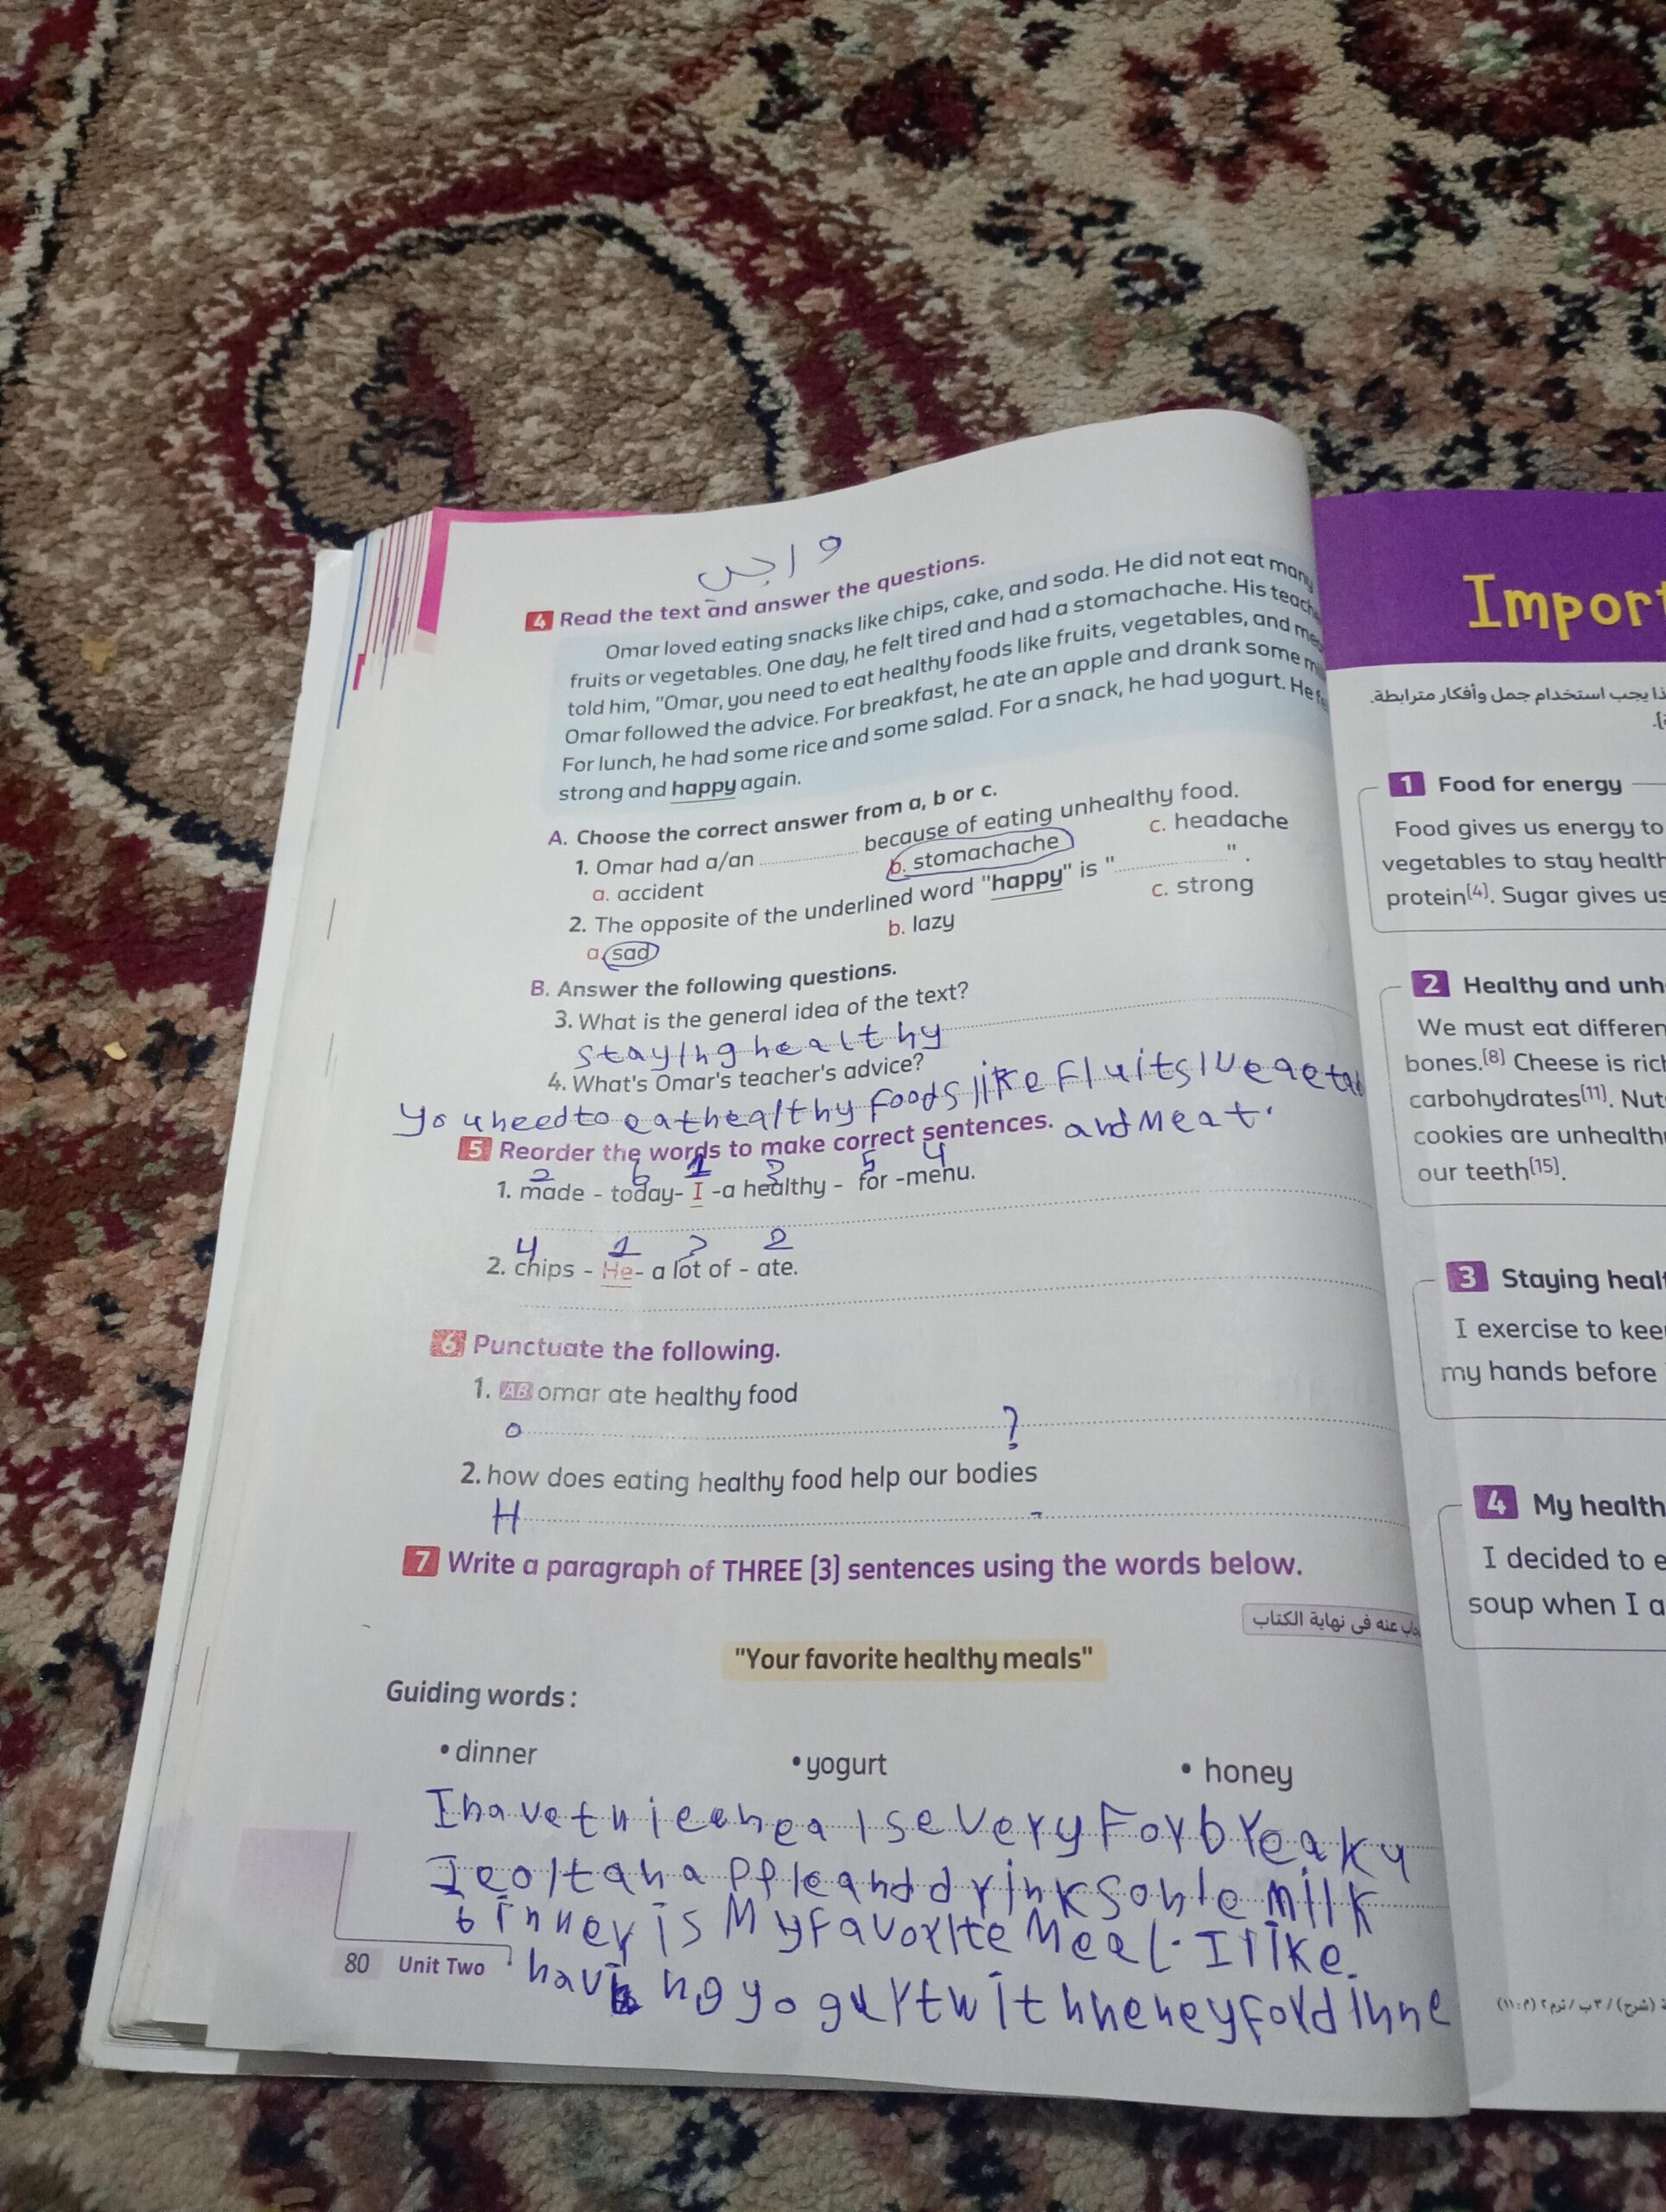 واجب
4 Read the text and answer the questions.
Omar loved eating snacks like chips, cake, and soda. He did not eat many
fruits or vegetables. One day, he felt tired and had a stomachache. His
told him, "Omar, you need to eat healthy foods like fruits, vegetables, and
Omar followed the advice. For breakfast, he ate an apple and drank some
For lunch, he had some rice and some salad. For a snack, he had yogurt. He
strong and happy again.
A. Choose the correct answer from a, b or c.
1. Omar had a/an ............ because of eating unhealthy food.
a. accident b. stomachache c. headache
2. The opposite of the underlined word "happy" is "............".
a. sad b. lazy c. strong
B. Answer the following questions.
3. What is the general idea of the text?
staying healthy
4. What's Omar's teacher's advice?
you need to eat healthy foods like
and Meat.
5 Reorder the words to make correct sentences.
2 6 1 3 5 4
1. made - today- I -a healthy - for -menu.
4 1 3 2
2. chips - He- a lot of - ate.
6 Punctuate the following.
1. AB omar ate healthy food
o ?
2. how does eating healthy food help our bodies
H
7 Write a paragraph of THREE [3] sentences using the words below.
عنه فى نهاية الكتاب
"Your favorite healthy meals"
Guiding words :
• dinner • yogurt • honey
I have every For
apple and drink milk
is My favorite Meal. I like
having yogurt with
80 Unit Two
Import
يجب استخدام جمل وأفكار مترابطة.
1 Food for energy
Food gives us energy to
vegetables to stay health
protein[4]. Sugar gives us
2 Healthy and unh
We must eat differen
bones.[8] Cheese is rich
carbohydrates[11]. Nut
cookies are unhealth
our teeth[15].
3 Staying healt
I exercise to kee
my hands before
4 My health
I decided to e
soup when I a